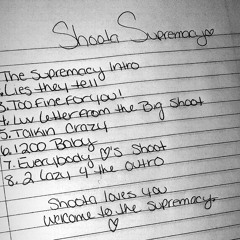 Shoota Supremacy♡
The Supremacy Intro
2. Lies they tell
3. Too Fine For You!
4. Luv Letter From the Big Shoot
5. Talkin Crazy
6. 1200 Baby
7. Everybody ♡'s Shoot
8. 2 Cozy 4 the outro
Shoota loves you
welcome to the supremacy.
♡